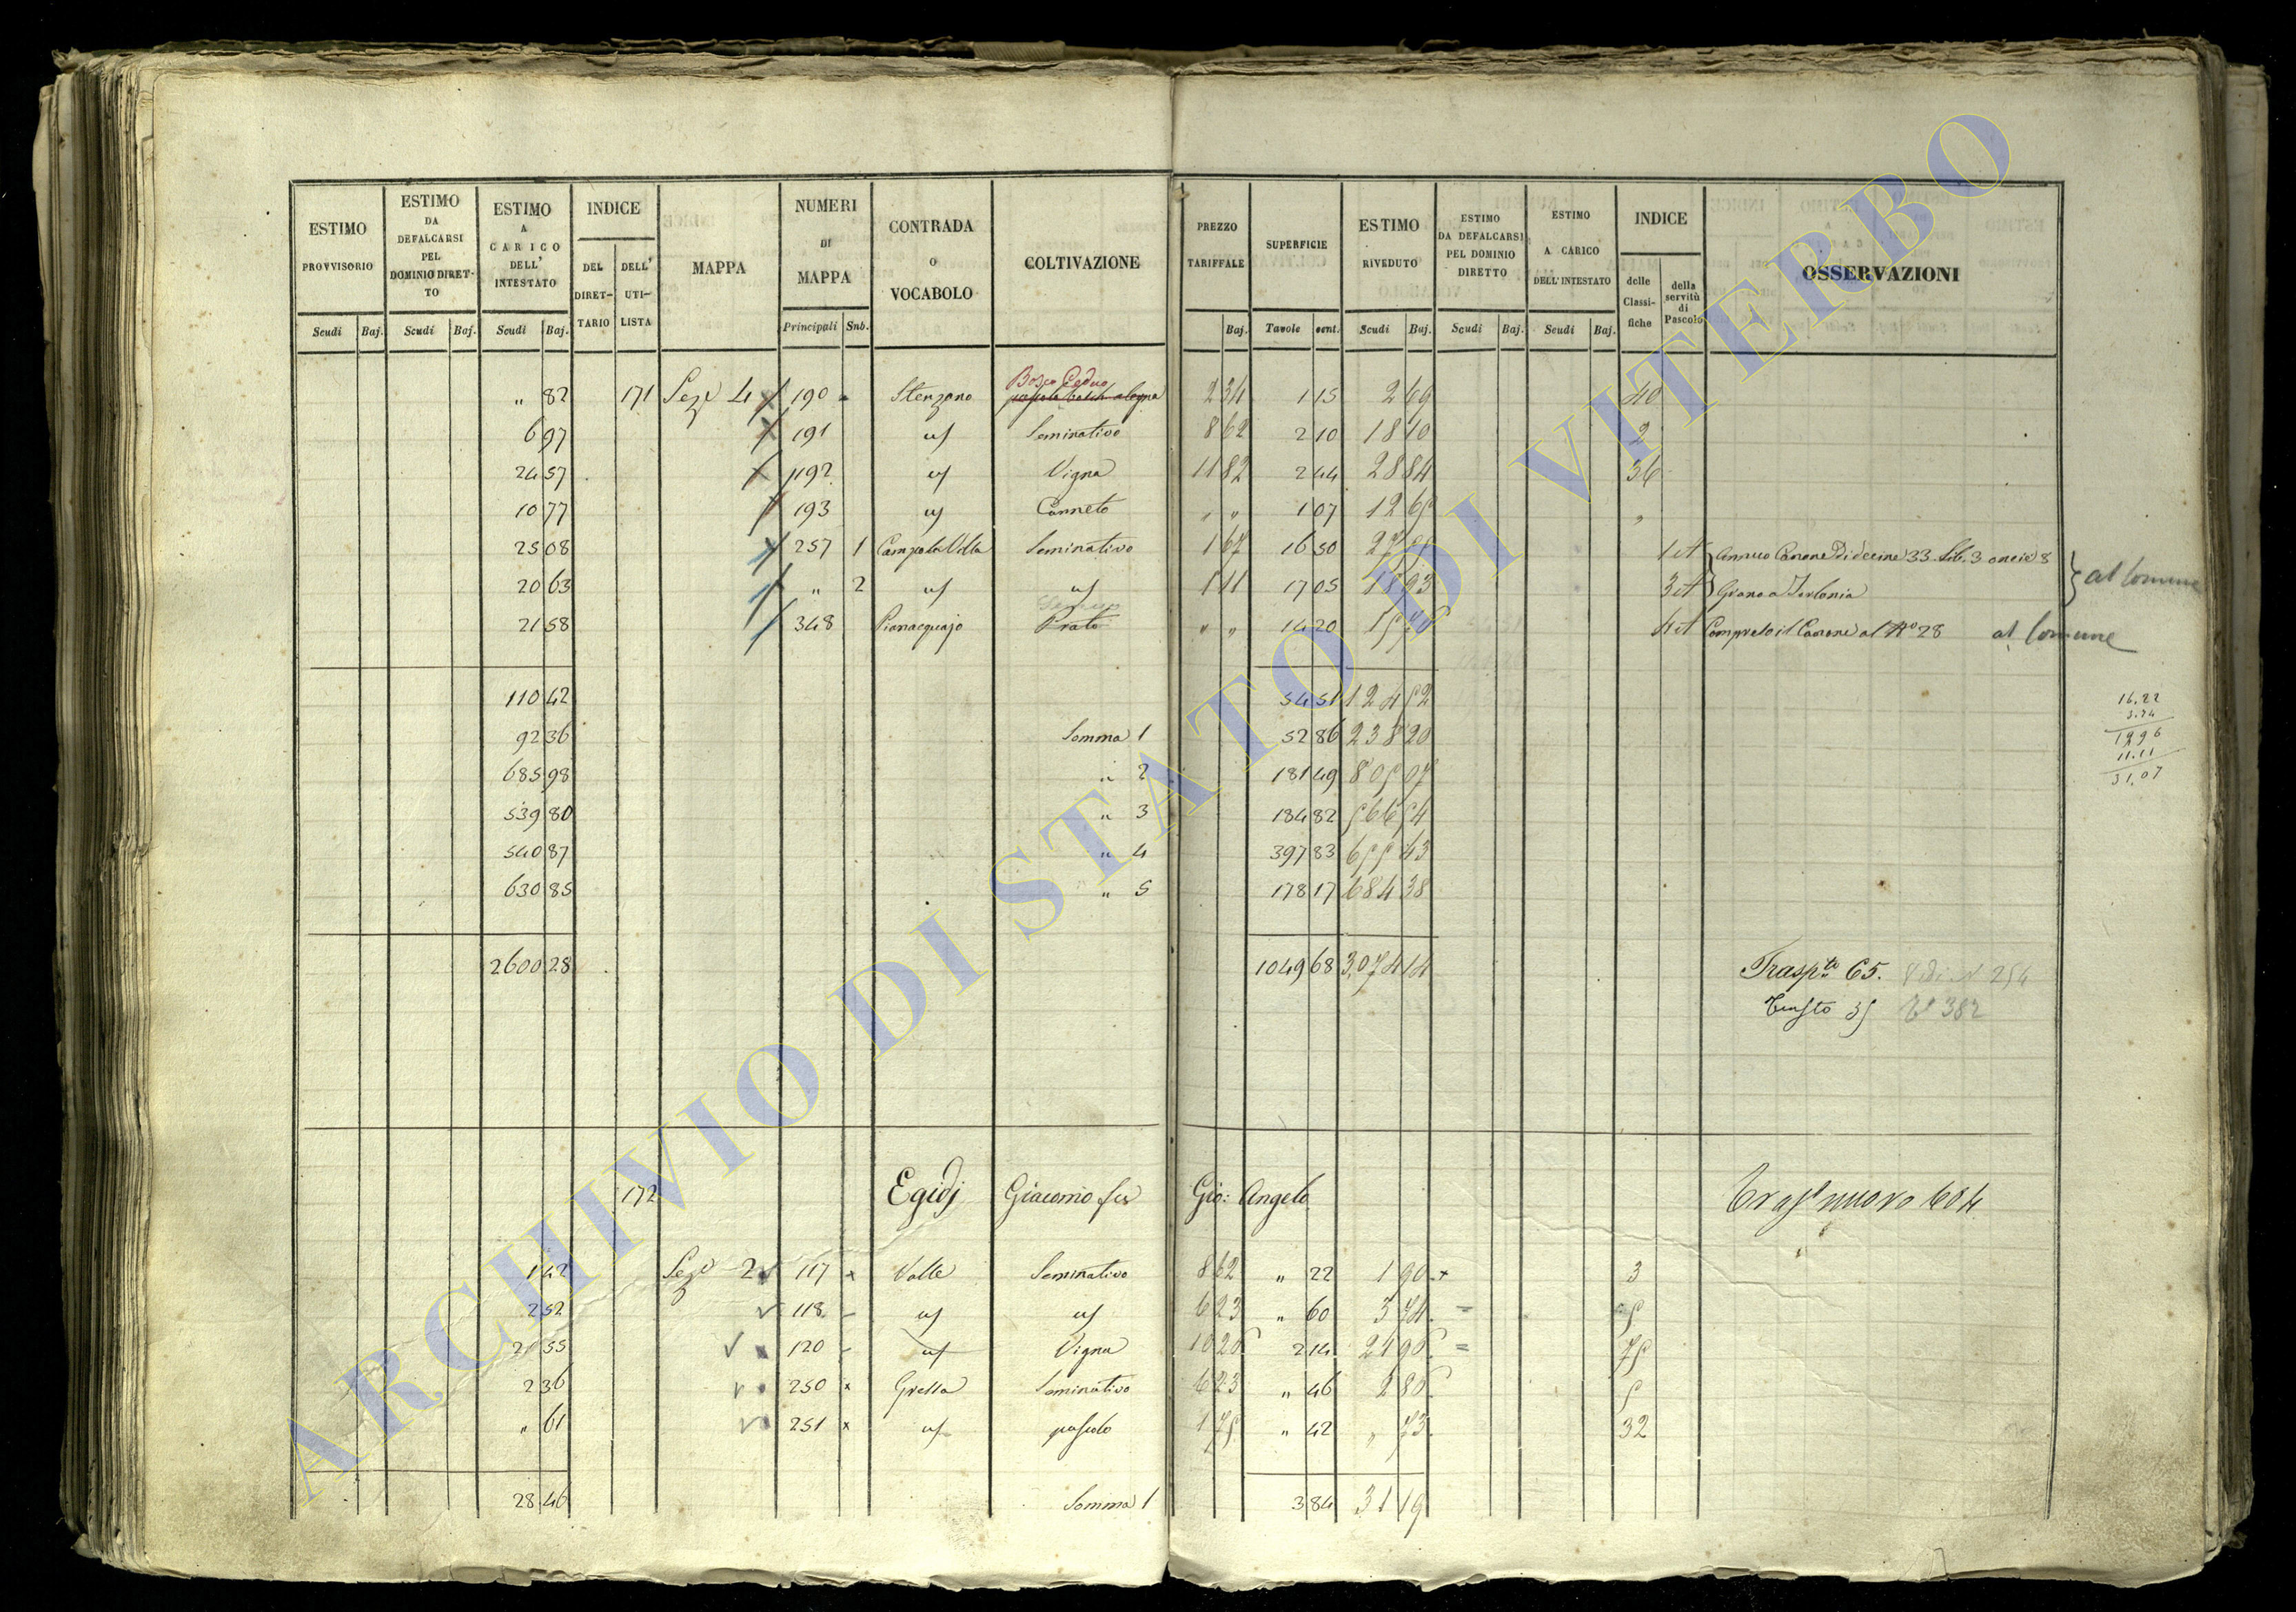 ESTIMO PROVVISORIO Scudi Baj. ESTIMO DA DEFALCARSI PEL DOMINIO DIRETTO Scudi Baj. ESTIMO A CARICO DELL' INTESTATO Scudi Baj. INDICE DEL DIRETTARIO DELL' UTILISTA MAPPA NUMERI DI MAPPA Principali Sub. CONTRADA O VOCABOLO COLTIVAZIONE PREZZO TARIFFALE Baj. SUPERFICIE Tavole cent. ESTIMO RIVEDUTO Scudi Baj. ESTIMO DA DEFALCARSI PEL DOMINIO DIRETTO Scudi Baj. ESTIMO A CARICO DELL'INTESTATO Scudi Baj. INDICE delle Classifiche della servitù di Pascolo OSSERVAZIONI
Bosco Ceduo
" 82 171 Sezᵉ 4 190 Stenzano 2 34 1 15 2 69 40
6 97 191 Seminativo 8 62 2 10 18 10 2
24 57 192 Vigna 11 82 2 44 28 84 36
10 77 193 Canneto " " 1 07 12 65 "
25 08 257 1 Seminativo 1 67 16 50 1 A Annuo Canone Di decine 33. Lib. 3 oncie 8
20 63 " 2 1 11 17 05 18 93 3 A Grano a Torlonia al Comune
21 58 348 Pianacquajo Prato " " 14 20 4 A Compreso il Canone al N° 28 al Comune
110 42 54 51 124 52
92 36 Somma 1 52 86 238 20
685 98 " 2 181 49 805 07
539 80 " 3 184 82 566 54
540 87 " 4 397 83 655 43
630 85 " 5 178 17 684 38
16.22
3.74
19 96
11.11
31,07
2600 28 1049 68 3,074 14 Traspᵗᵒ 65.
382
172 Egidj Giacomo Gio: Angelo nuovo 604
1 42 Sezᵉ 2 117 x Valle Seminativo 8 62 " 22 1 90 3
2 52 118 6 23 " 60 3 74 5
21 55 120 Vigna 10 2 14 21 75
2 36 250 x Grella Seminativo 6 23 " 46 2 5
" 61 251 x pascolo 1 75 " 42 " 73 32
28 46 Somma 1 3 84 31 19
ARCHIVIO DI STATO DI VITERBO